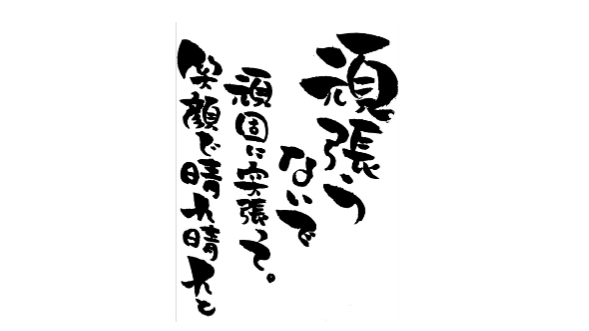 頑張ら
ないで
頑固に突張って。
笑顔で晴れ晴れと